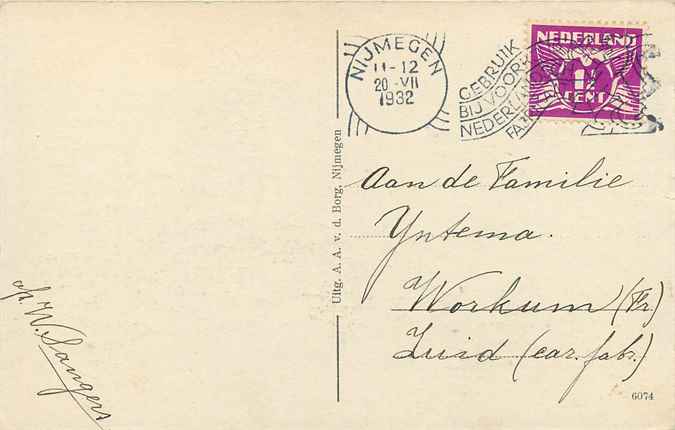 NIJMEGEN
11-12
20 VII
1932
GEBRUIK
BIJ VOORK
NEDERLAND
FA
NEDERLAND
1½
CENT
Aan de Familie
Yntema.
Workum (Fr)
Zuid (car. fab.)
afz. W. Sangers
Uitg. A. A. v. d. Borg, Nijmegen
6074